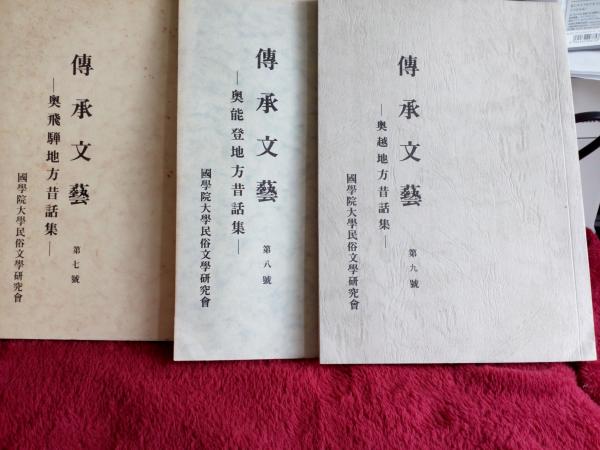 傳承文藝
第七號
―奥飛驒地方昔話集―
國學院大學民俗文學研究會
傳承文藝
第八號
―奥能登地方昔話集―
國學院大學民俗文學研究會
傳承文藝
第九號
―奥越地方昔話集―
國學院大學民俗文學研究會